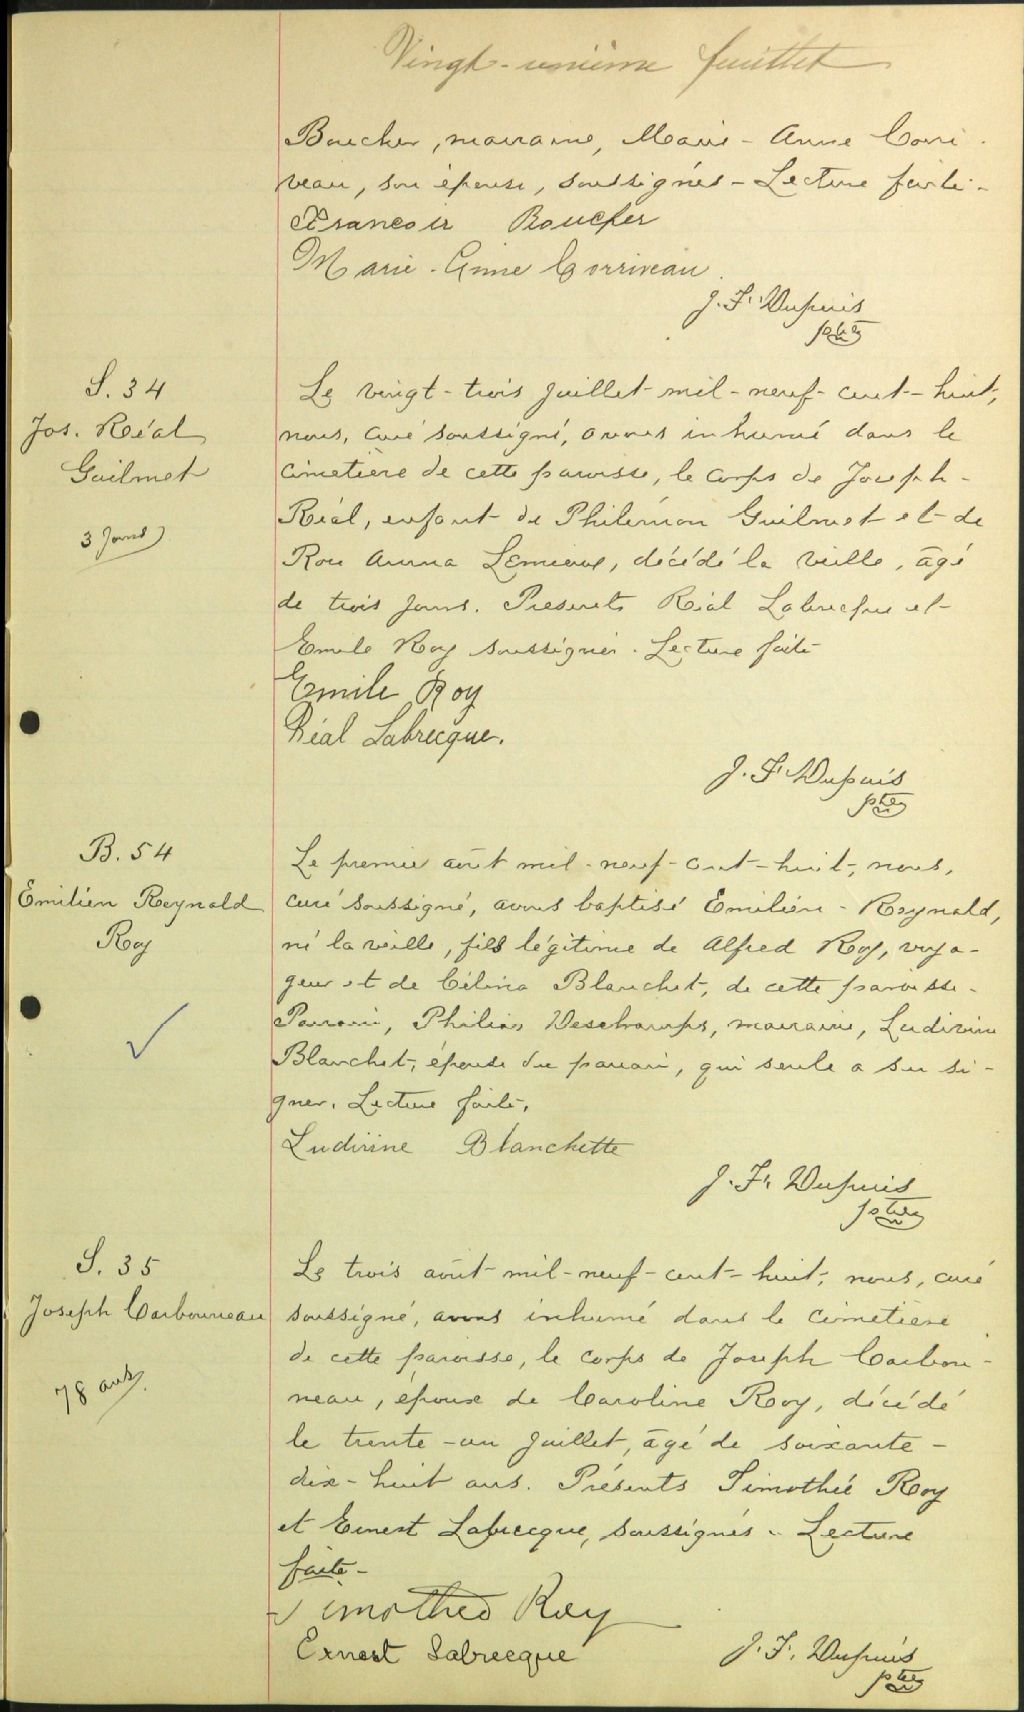 Vingt-unième feuillet
Boucher, marraine, Marie-Anne Corri-
veau, son épouse, soussignés - Lecture faite -
François Boucher
Marie-Anne Corriveau
J. F. Dupuis
ptre
S. 34
Jos. Réal
Guilmet
3 jours
Le vingt-trois juillet mil-neuf-cent-huit,
nous, curé soussigné, avons inhumé dans le
cimetière de cette paroisse, le corps de Joseph-
Réal, enfant de Philémon Guilmet et de
Rose Anna Lemieux, décédé la veille, âgé
de trois jours. Présents Réal Labrecque et
Emile Roy soussignés. Lecture faite
Emile Roy
Réal Labrecque.
J. F. Dupuis
ptre
B. 54
Emilien Reynald
Roy
Le premier août mil-neuf-cent-huit, nous,
curé soussigné, avons baptisé Emilien-Reynald,
né la veille, fils légitime de Alfred Roy, voya-
geur et de Célina Blanchet, de cette paroisse.
Parrain, Philias Deschamps, marraine, Ludivine
Blanchet, épouse du parrain, qui seule a su si-
gner. Lecture faite.
Ludivine Blanchette
J. F. Dupuis
ptre
S. 35
Joseph Carbonneau
78 ans
Le trois août mil-neuf-cent-huit, nous, curé
soussigné, avons inhumé dans le cimetière
de cette paroisse, le corps de Joseph Carbon-
neau, époux de Caroline Roy, décédé
le trente-un juillet, âgé de soixante-
dix-huit ans. Présents Timothée Roy
et Ernest Labrecque, soussignés. Lecture
faite -
Timotheo Roy
Ernest Labrecque
J. F. Dupuis
ptre